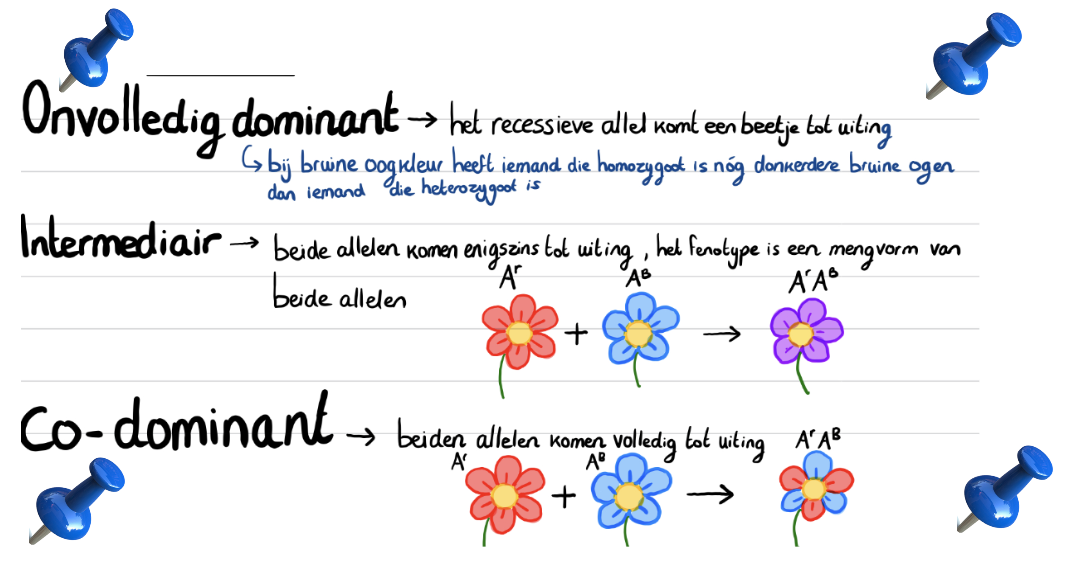 Onvolledig dominant → het recessieve allel komt een beetje tot uiting
↳ bij bruine oogkleur heeft iemand die homozygoot is nóg donkerdere bruine ogen
dan iemand die heterozygoot is
Intermediair → beide allelen komen enigszins tot uiting, het fenotype is een mengvorm van
beide allelen
Aʳ + Aᴮ → AʳAᴮ
Co-dominant → beiden allelen komen volledig tot uiting
Aʳ + Aᴮ → AʳAᴮ